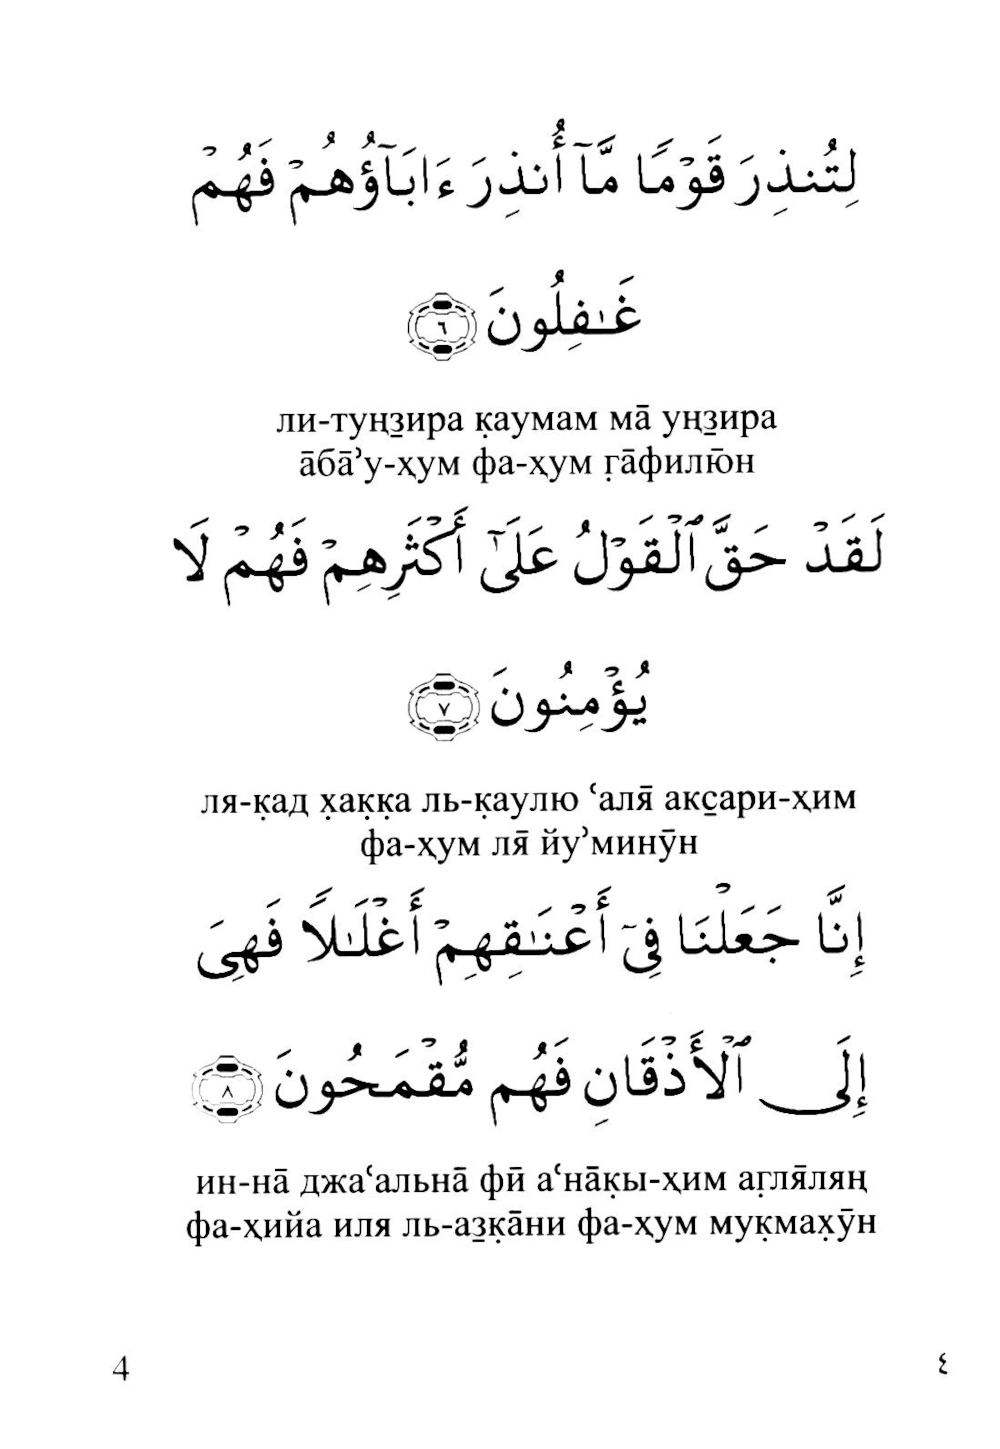 لِتُنذِرَ قَوْمًا مَّآ أُنذِرَ ءَابَآؤُهُمْ فَهُمْ
غَـٰفِلُونَ ٦
ли-туң̣з̱ира қ̣аумам ма̄ уңз̱ира
а̄ба̄ʾу-ҳум фа-ҳум г̣а̄филю̄н
لَقَدْ حَقَّ ٱلْقَوْلُ عَلَىٰٓ أَكْثَرِهِمْ فَهُمْ لَا
يُؤْمِنُونَ ٧
ля-к̣ад х̣ак̣к̣а ль-к̣аулю ʿаля̄ акс̱ари-ҳим
фа-ҳум ля̄ йуʾминӯн
إِنَّا جَعَلْنَا فِىٓ أَعْنَـٰقِهِمْ أَغْلَـٰلًا فَهِىَ
إِلَى ٱلْأَذْقَانِ فَهُم مُّقْمَحُونَ ٨
ин-на̄ джаʿальна̄ фӣ аʿна̄к̣ы-ҳим аг̣ля̄ляң
фа-ҳийа иля ль-аз̱к̣а̄ни фа-ҳум мук̣мах̣ӯн
4 ٤